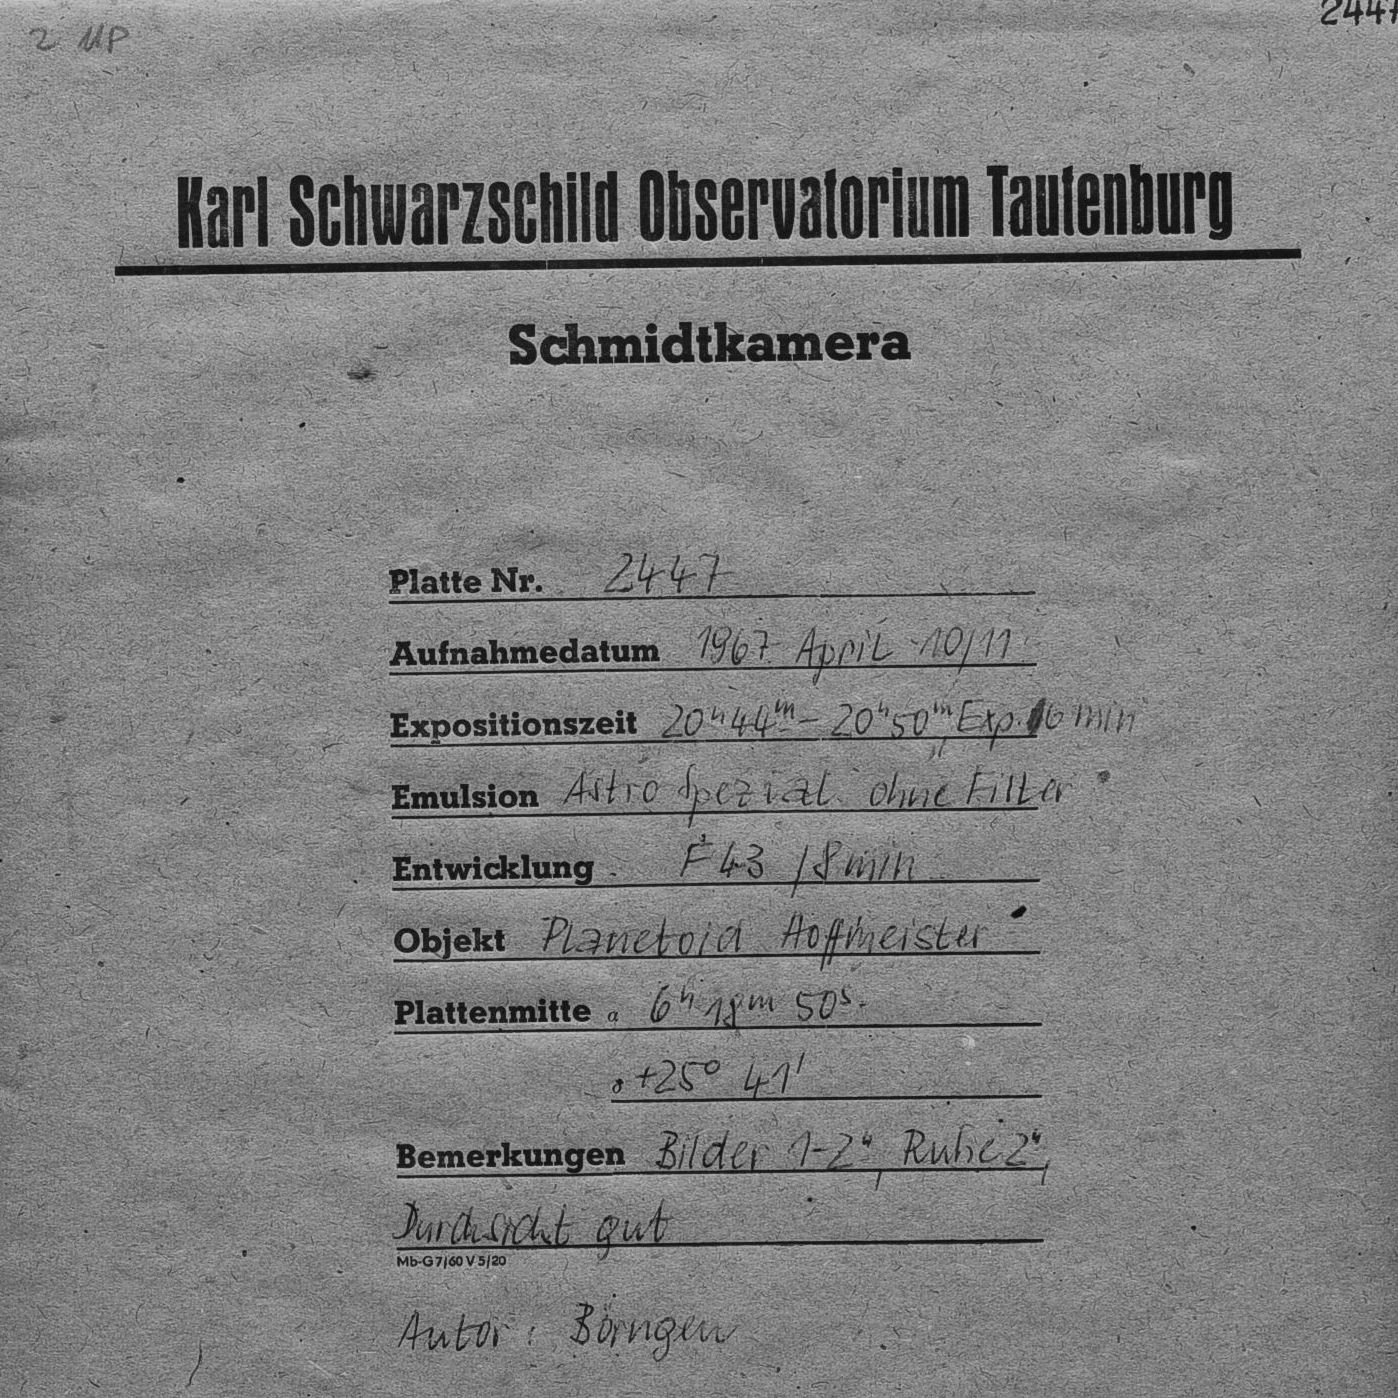 2 MP
2447
Karl Schwarzschild Observatorium Tautenburg
Schmidtkamera
Platte Nr. 2447
Aufnahmedatum 1967 April 10/11
Expositionszeit 20ʰ44ᵐ – 20ʰ50ᵐ Exp. 6 min
Emulsion Astro Spezial ohne Filter
Entwicklung F43 / 8 min
Objekt Planetoid Hoffmeister
Plattenmitte α 6ʰ 18ᵐ 50ˢ
δ +25° 41'
Bemerkungen Bilder 1-2", Ruhe 2",
Durchsicht gut
Mb-G 7/60 V 5/20
Autor: Börngen